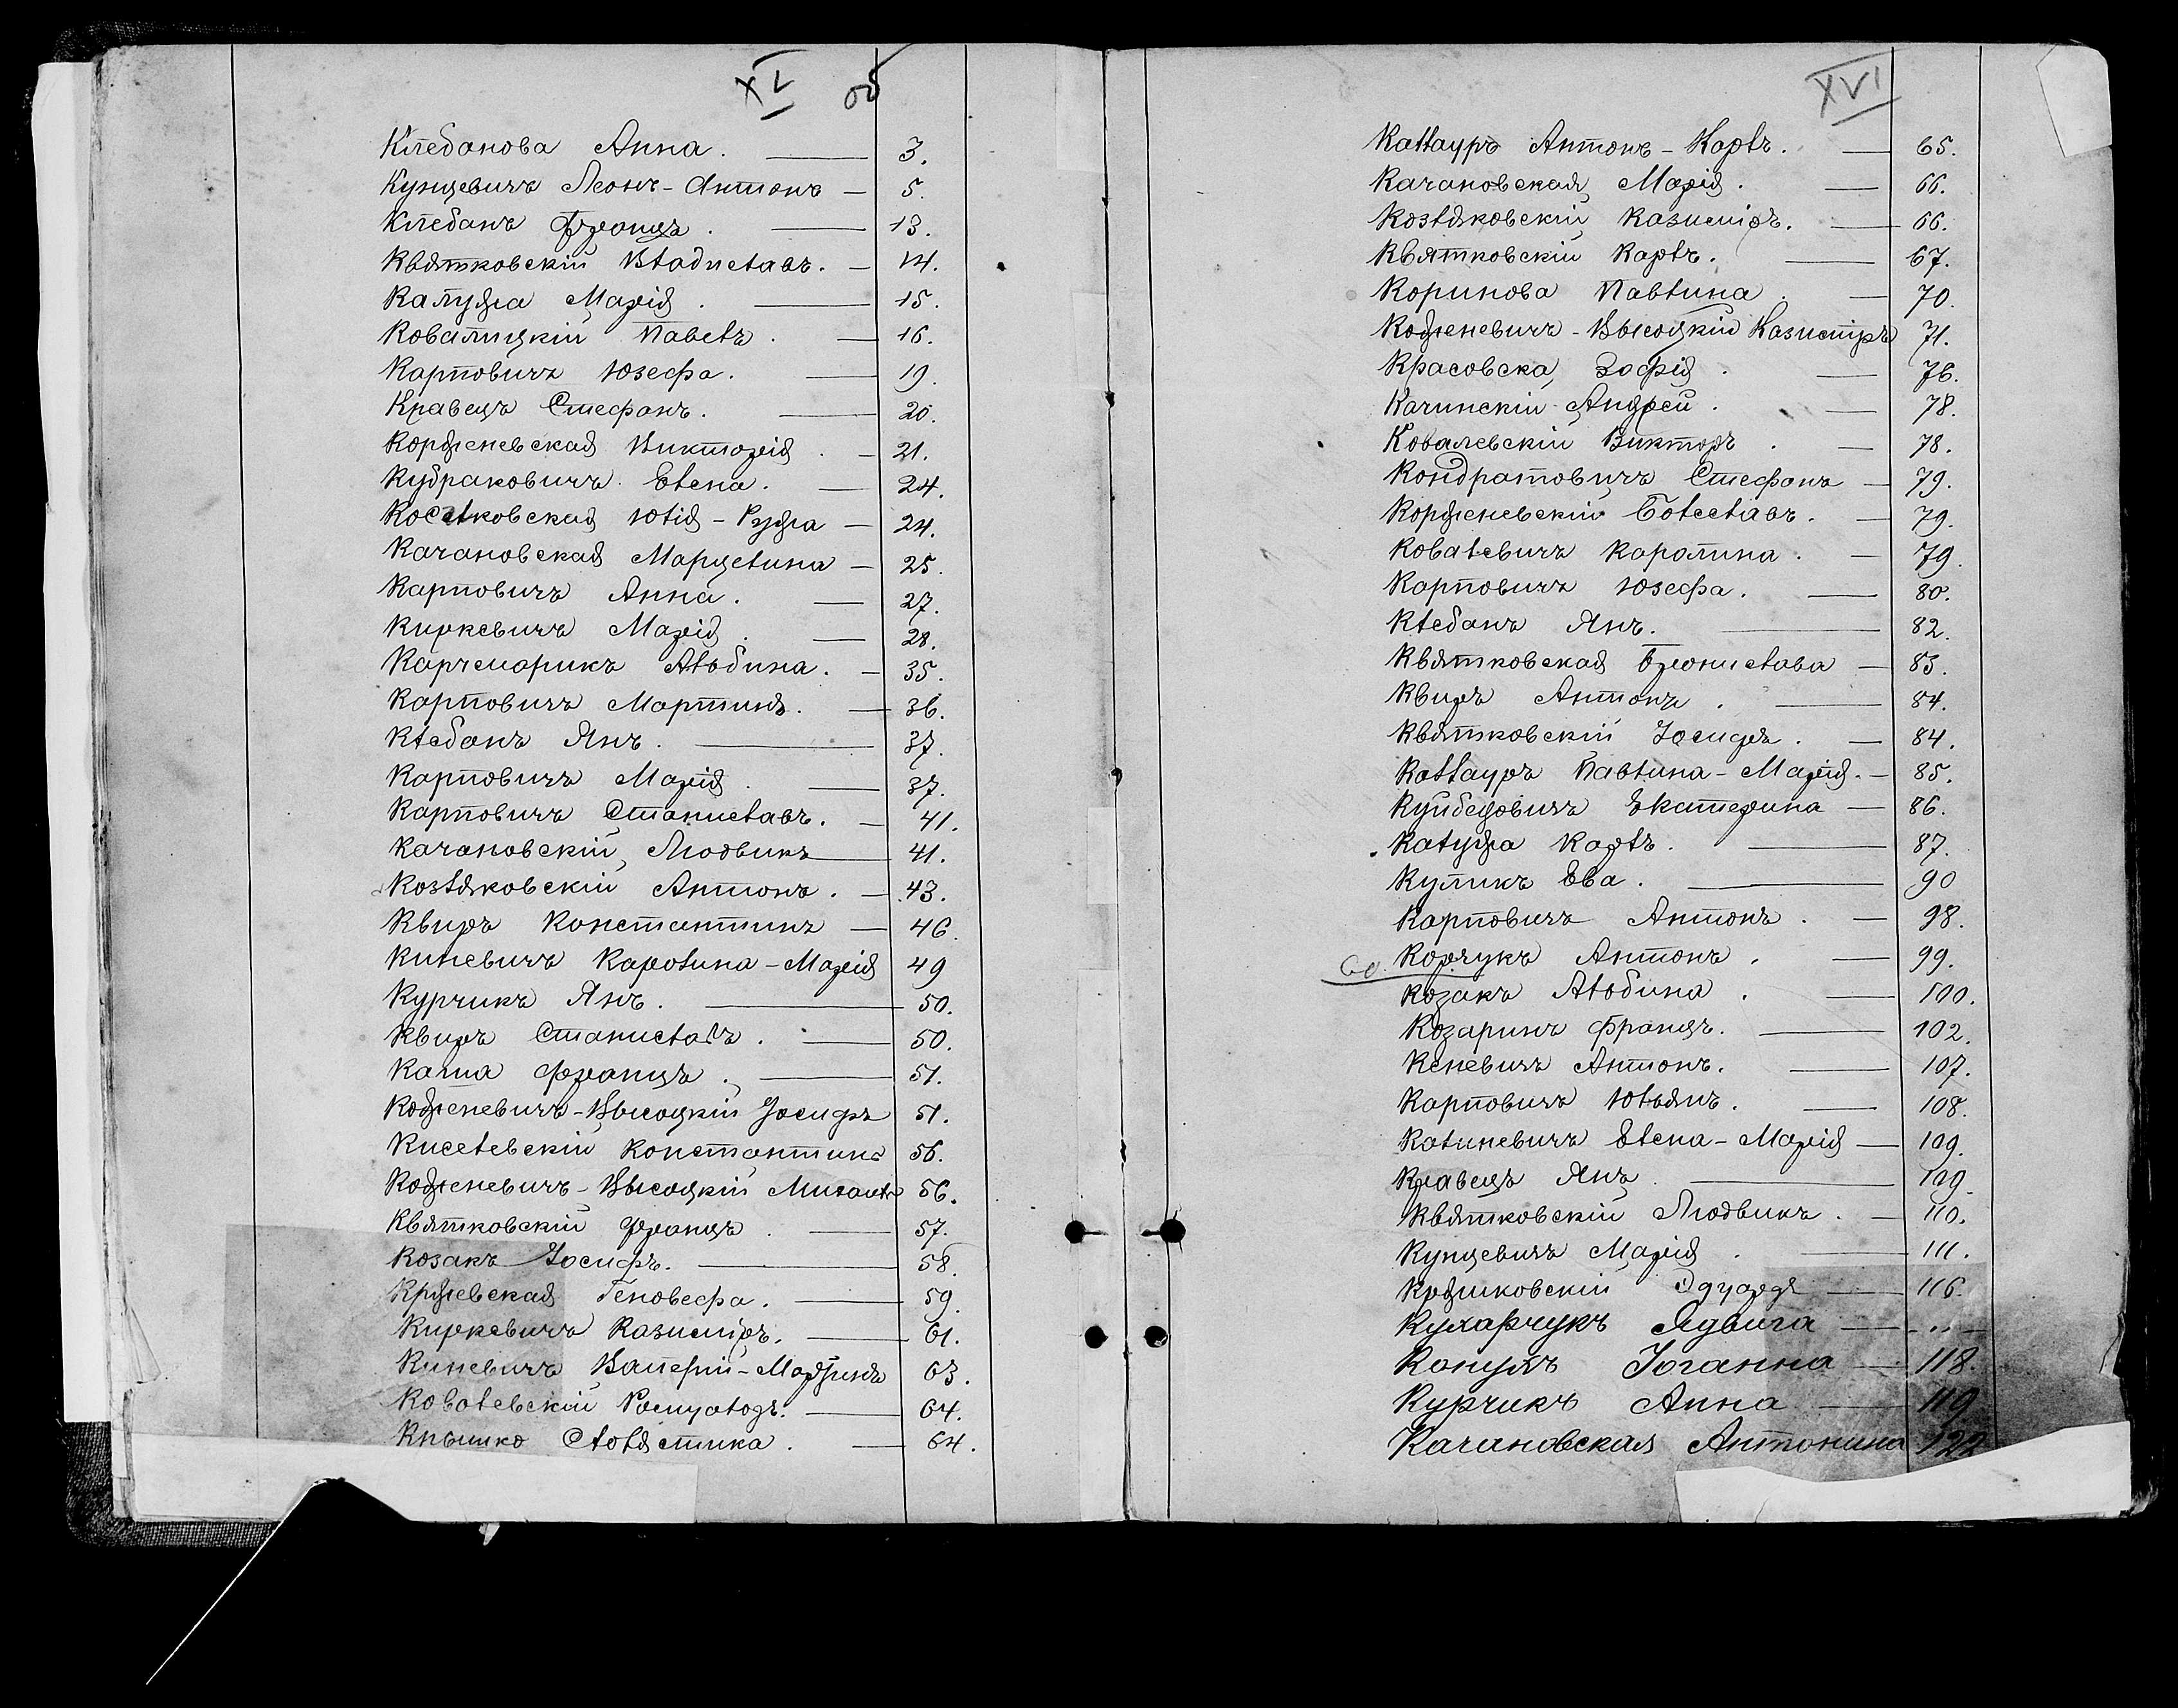 XV об
Клебанова Анна. 3.
Кунцевичъ Леонъ-Антонъ 5.
Клебанъ Францъ. 13.
Квятковскій Владиславъ. 14.
Калужа Марія. 15.
Ковалицкій Павелъ. 16.
Карповичъ Юзефа. 19.
Кравецъ Стефанъ. 20.
Корженевская Викторія. 21.
Кудраковичъ Елена. 24.
Юлія-Ружа 24.
Качановская Марцелина 25.
Карповичъ Анна. 27.
Киркевичъ Марія. 28.
Карчмарикъ Альбина. 35.
Карповичъ Мартинъ. 36.
Клебанъ Янъ. 37.
Карповичъ Марія. 37.
Карповичъ Станиславъ. 41.
Качановскій Людвикъ 41.
Козляковскій Антонъ. 43.
Квиръ Константинъ 46.
Киневичъ Каролина-Марія 49
Курчикъ Янъ. 50.
Квиръ Станиславъ. 50.
Капта Францъ. 51.
Кодженевичъ-Высоцкій Іосифъ 51.
Киселевскій Константинъ 56.
Кодженевичъ-Высоцкій Михаилъ 56.
Квятковскій Францъ. 57.
Козакъ Іосифъ. 58.
Геновефа. 59.
Киркевичъ Казиміръ. 61.
Киневичъ Валерій-Мартинъ 63.
Ковалевскій 64.
64.
XVI
Каллауръ Антонъ-Карлъ. 65.
Качановская Марія. 66.
Козляковскій Казиміръ. 66.
Квятковскій Карлъ. 67.
Коринова Павлина. 70.
Кодженевичъ-Высоцкій Казиміръ 71.
Красовска Зофія. 76.
Качинскій Андрей. 78.
Ковалевскій Викторъ. 78.
Кондратовичъ Стефанъ 79.
Корженевскій Болеславъ. 79.
Ковалевичъ Каролина. 79.
Карповичъ Юзефа. 80.
Клебанъ Янъ. 82.
Квятковская Брониславa 83.
Квиръ Антонъ. 84.
Квятковскій Іосифъ. 84.
Каллауръ Павлина-Марія. 85.
Екатерина 86.
Калужа Карлъ. 87.
Куликъ Ева. 90
Карповичъ Антонъ. 98.
Корчукъ Антонъ. 99.
Козакъ Альбина. 100.
Козаринъ Францъ. 102.
Кеневичъ Антонъ. 107.
Карповичъ Юльянъ. 108.
Калиневичъ Елена-Марія 109.
Кравецъ Янъ 109.
Квятковскій Людвикъ. 110.
Кунцевичъ Марія. 111.
Эдуардъ 116.
Кухарчукъ Ядвига - " -
Іоганна 118.
Курчикъ Анна 119
Качановская Антонина